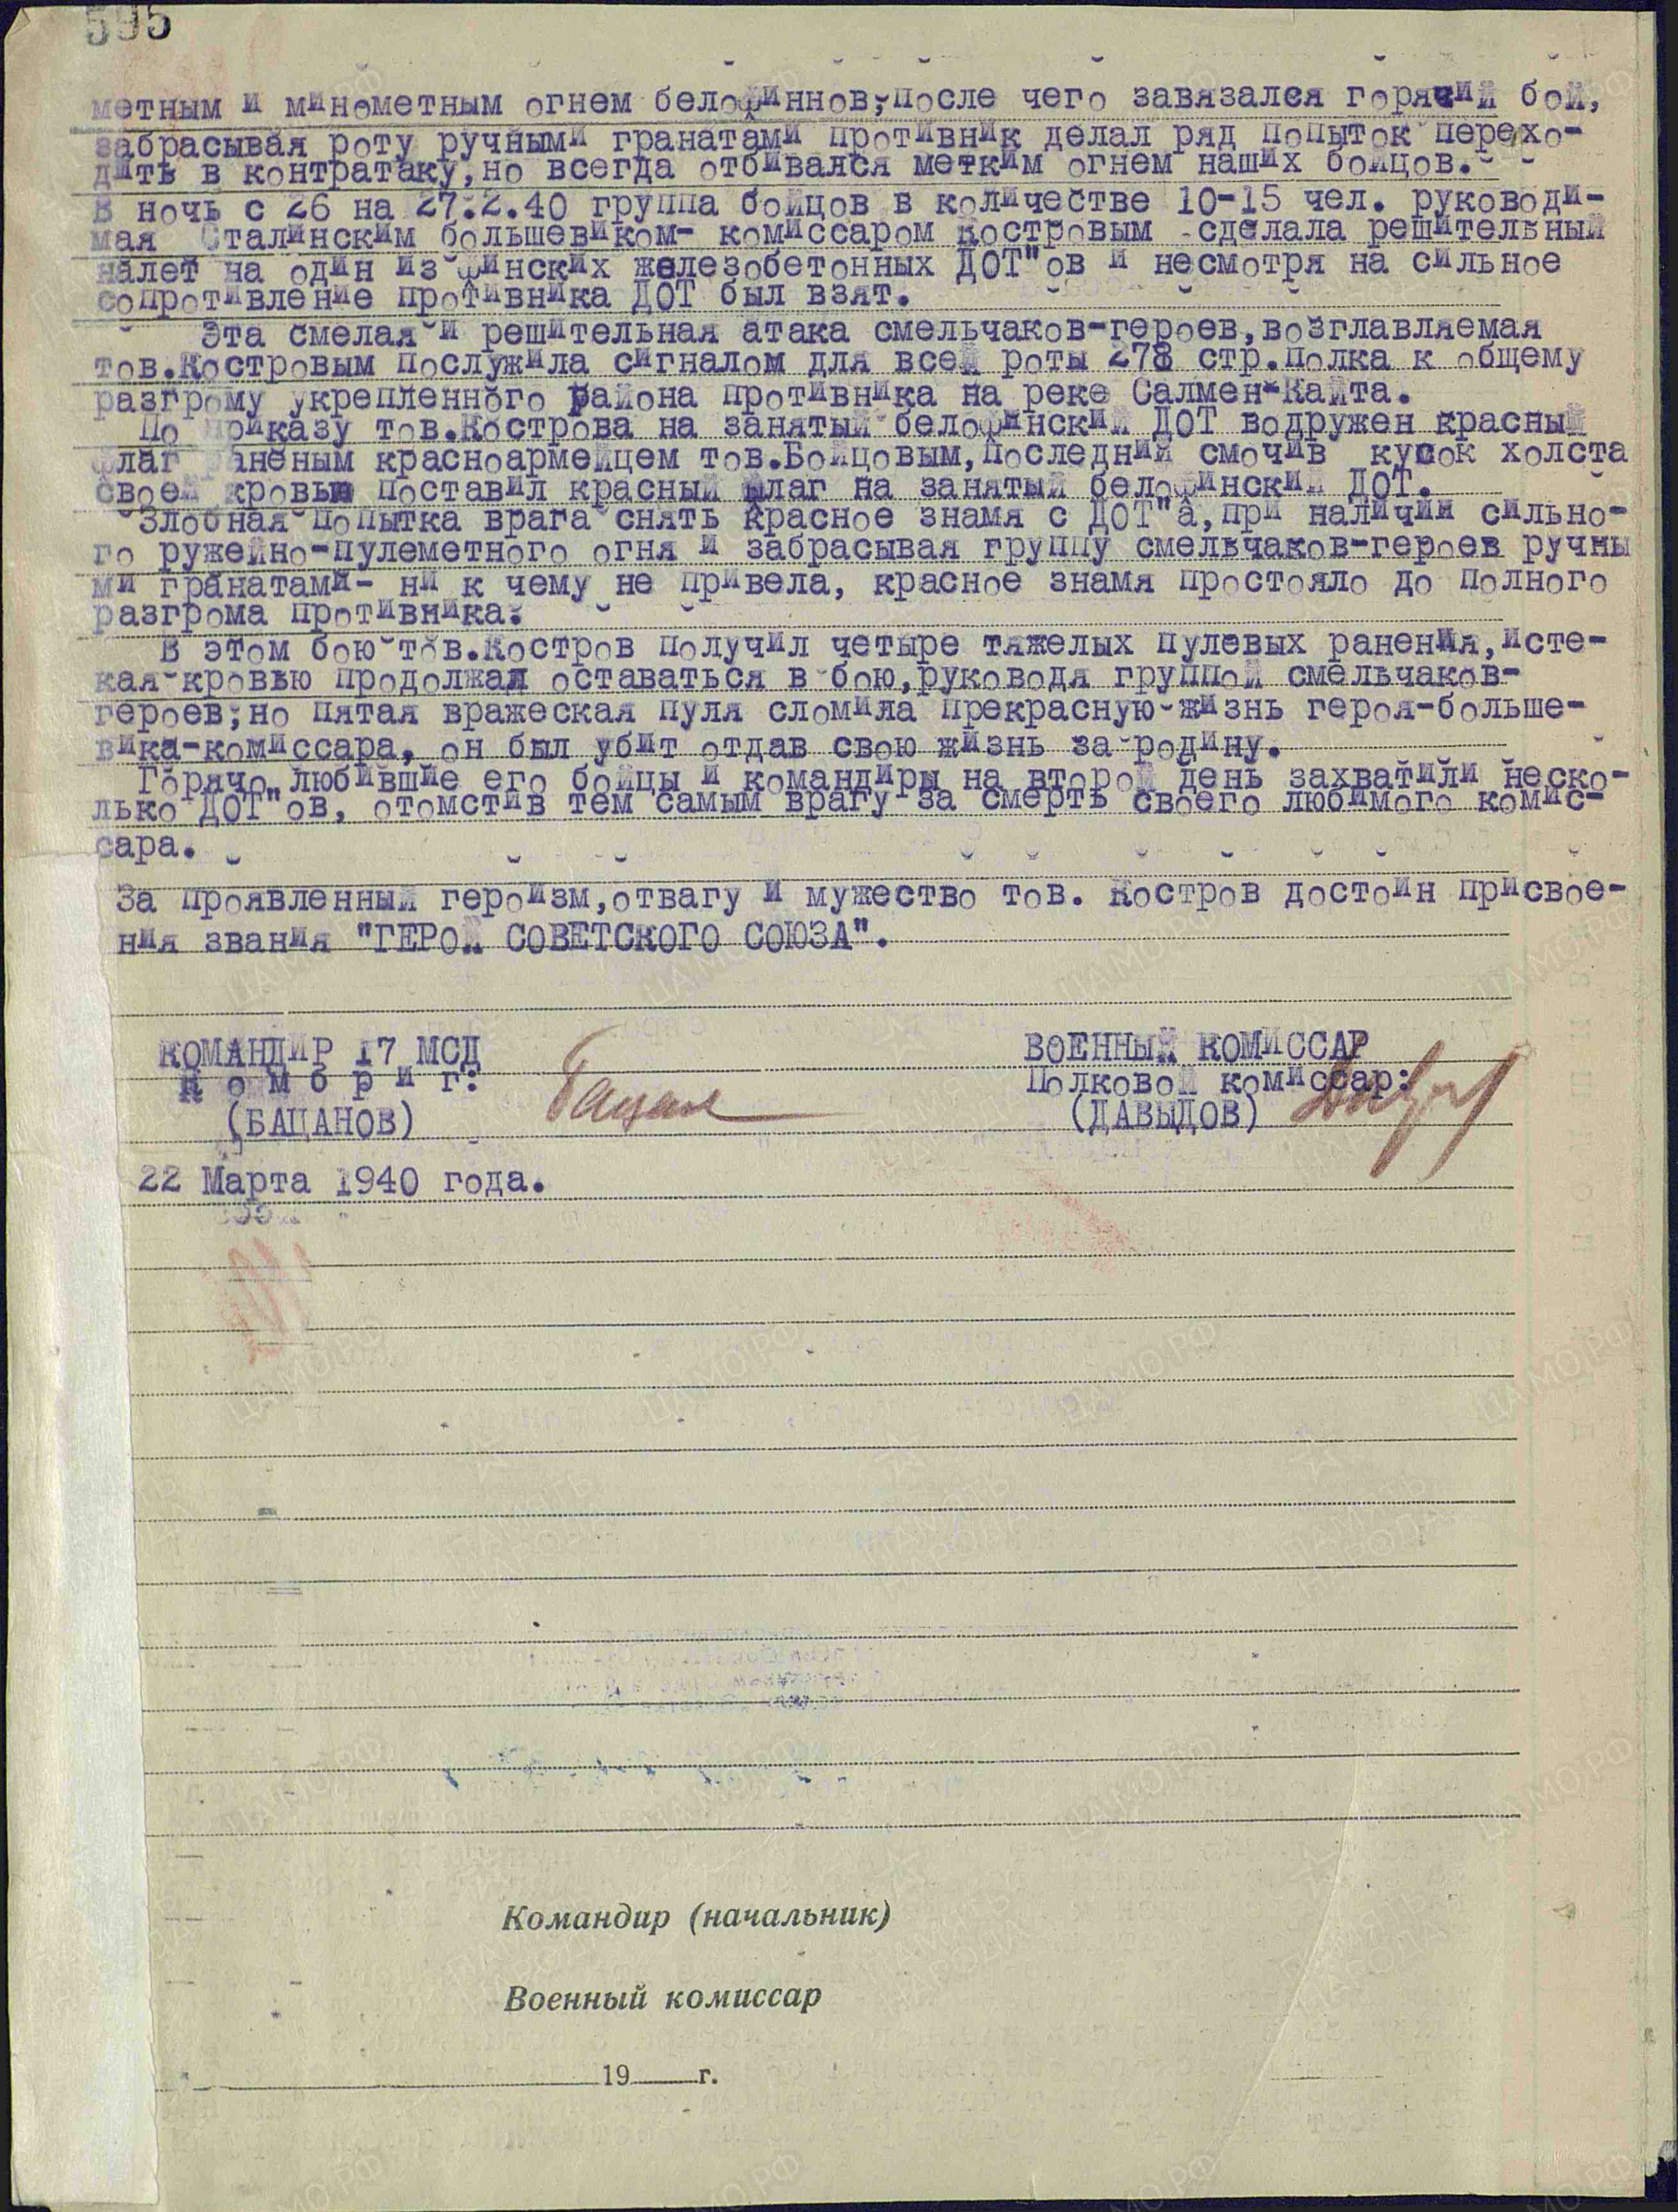 595
метным и минометным огнем белофиннов, после чего завязался горячий бой,
забрасывая роту ручными гранатами противник делал ряд попыток перехо-
дить в контратаку, но всегда отбивался метким огнем наших бойцов.
В ночь с 26 на 27.2.40 группа бойцов в количестве 10-15 чел. руководи-
мая Сталинским большевиком- комиссаром Костровым -сделала решительный
налет на один из финских железобетонных ДОТ"ов и несмотря на сильное
сопротивление противника ДОТ был взят.
Эта смелая и решительная атака смельчаков-героев, возглавляемая
тов.Костровым послужила сигналом для всей роты 278 стр.полка к общему
разгрому укрепленного района противника на реке Салмен-Кайта.
По приказу тов.Кострова на занятый белофинский ДОТ водружен красный
флаг раненым красноармейцем тов.Бойцовым, последний смочив кусок холста
своей кровью поставил красный флаг на занятый белофинский ДОТ.
Злобная попытка врага снять красное знамя с ДОТ"а, при наличии сильно-
го ружейно-пулеметного огня и забрасывая группу смельчаков-героев ручны
ми гранатами- ни к чему не привела, красное знамя простояло до полного
разгрома противника.
В этом бою тов.Костров получил четыре тяжелых пулевых ранения, исте-
кая кровью продолжал оставаться в бою, руководя группой смельчаков-
героев; но пятая вражеская пуля сломила прекрасную жизнь героя-больше-
вика-комиссара, он был убит отдав свою жизнь за родину.
Горячо любившие его бойцы и командиры на второй день захватили неско-
лько ДОТ"ов, отомстив тем самым врагу за смерть своего любимого комис-
сара.
За проявленный героизм, отвагу и мужество тов. Костров достоин присвое-
ния звания "ГЕРОЙ СОВЕТСКОГО СОЮЗА".
КОМАНДИР 17 МСД ВОЕННЫЙ КОМИССАР
к о м б р и г: Полковой комиссар:
(БАЦАНОВ) Бацан (ДАВЫДОВ)
22 Марта 1940 года.
Командир (начальник)
Военный комиссар
19 г.